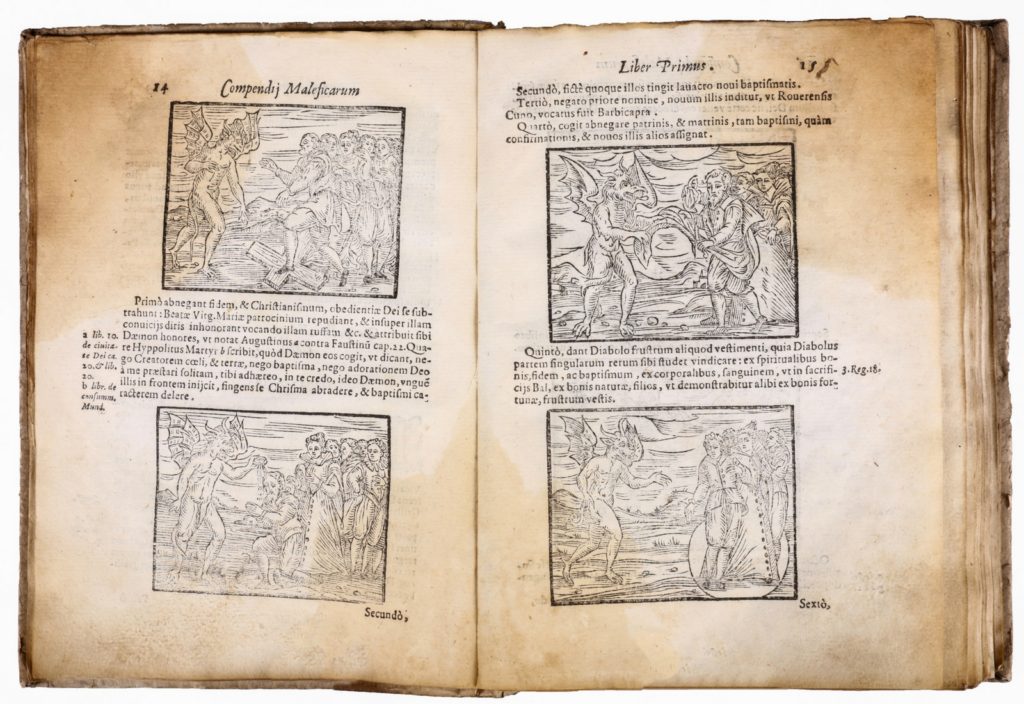 14 Compendij Maleficarum
Primò abnegant fidem, & Christianismum, obedientiæ Dei se sub-
trahunt: Beatæ Virg. Mariæ patrocinium repudiant, & insuper illam
conuicijs diris inhonorant vocando illam ruffam &c. & attribuit sibi
Dæmon honores, vt notat Augustinus a contra Faustinū cap. 22. Qua-
re Hyppolitus Martyr b scribit, quòd Dæmon eos cogit, vt dicant, ne-
go Creatorem cœli, & terræ, nego baptisma, nego adorationem Deo
à me præstari solitam, tibi adhæreo, in te credo, ideo Dæmon, vnguē
illis in frontem inijcit, fingens se Chrisma abradere, & baptismi ca-
racterem delere.
a lib. 10.
de ciuita-
te Dei ca.
20. & lib.
20.
b libr. de
consumm.
Mund.
Secundò,
Liber Primus. 15
Secundò, fictè quoque illos tingit lauacro noui baptismatis.
Tertiò, negato priore nomine, nouum illis inditur, vt Rouerensis
Cuno, vocatus fuit Barbicapra.
Quartò, cogit abnegare patrinis, & matrinis, tam baptismi, quàm
confirmationis, & nouos illis alios assignat.
Quintò, dant Diabolo frustrum aliquod vestimenti, quia Diabolus
partem singularum rerum sibi studet vindicare: ex spiritualibus bo-
nis, fidem, ac baptismum, ex corporalibus, sanguinem, vt in sacrifi-
cijs Bal, ex bonis naturæ, filios, vt demonstrabitur alibi ex bonis for-
tunæ, frustrum vestis.
3. Reg. 18.
Sextò,